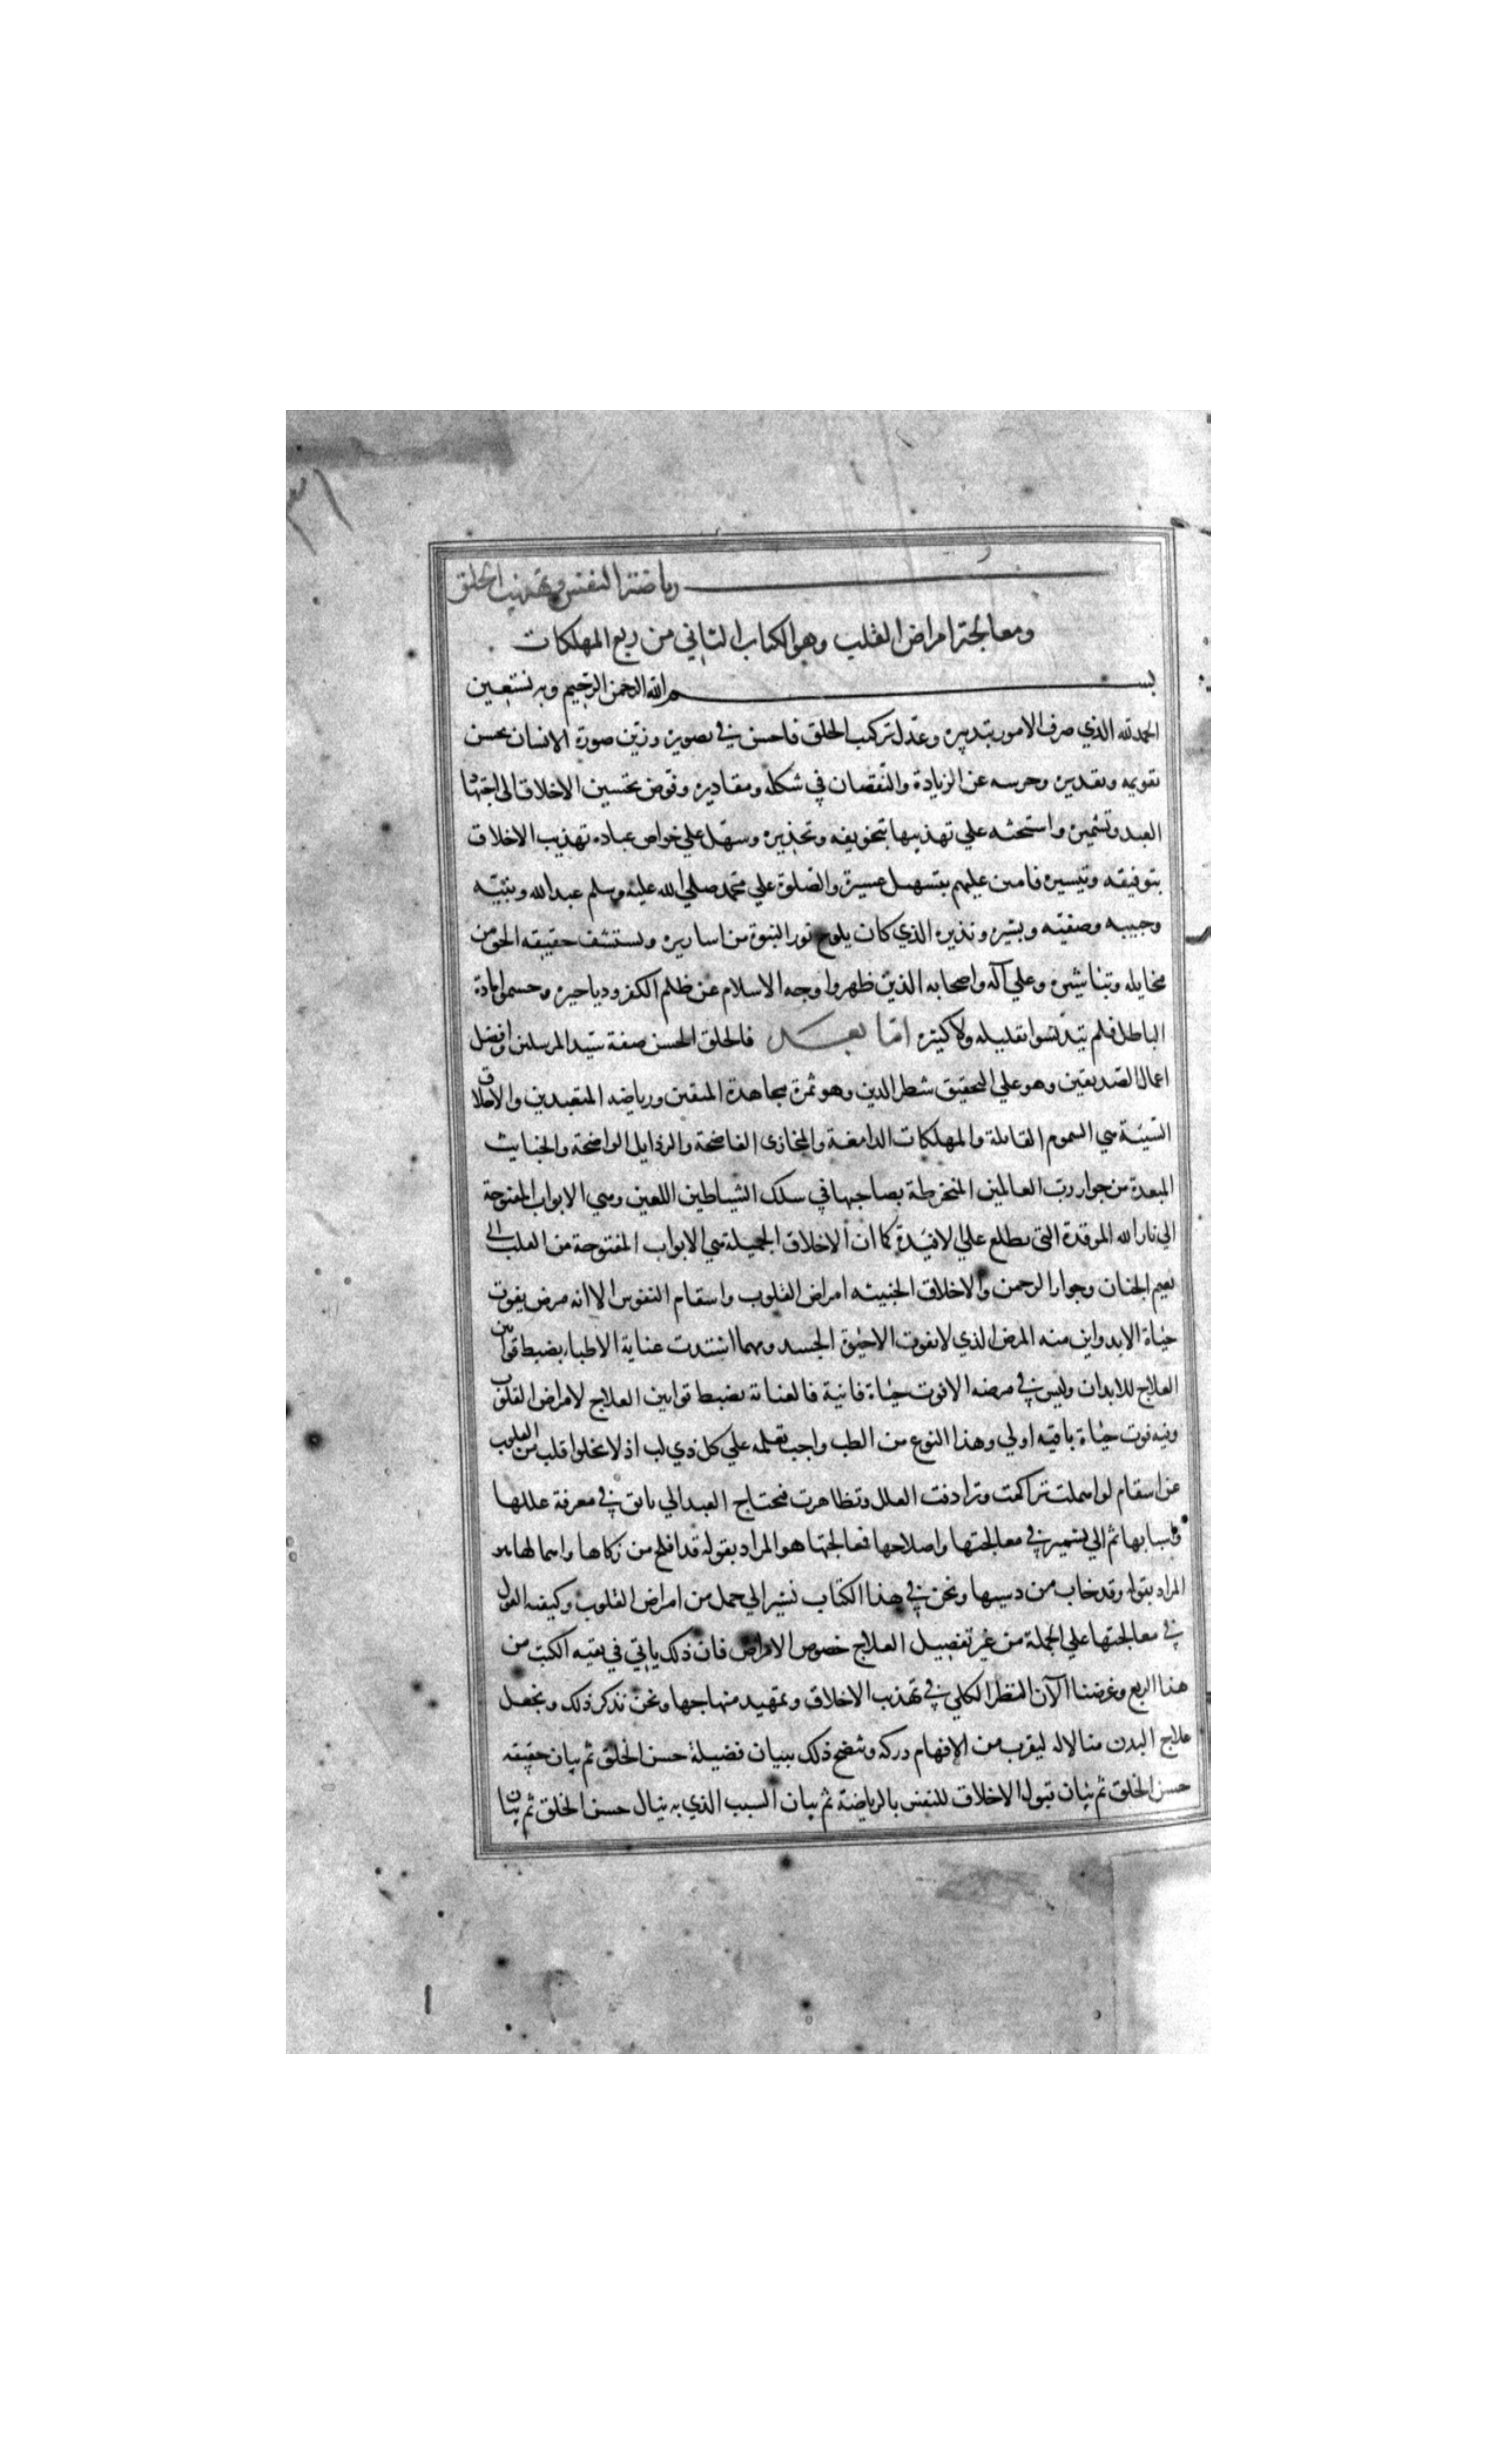 رياضة النفس وتهذيب الخلق
ومعالجة امراض القلب وهو الكتاب الثاني من ربع المهلكات
بسم الله الرحمن الرحيم وبه نستعين
الحمد لله الذي صرف الامور بتدبيره وعدل تركيب الخلق فاحسن في تصويره وزين صورة الانسان بحسن
تقويمه وتقديره وحرسه عن الزيادة والنقصان في شكله ومقاديره وفوض تحسين الاخلاق الى اجتهاد
العبد وتشميره واستحثه علي تهذيبها بتخويفه وتحذيره وسهل علي خواص عباده تهذيب الاخلاق
بتوفيقه وتيسيره فامتن عليهم بتسهيل عسيره والصلوة علي محمد صلي الله عليه وسلم عبد الله ونبيه
وحبيبه وصفيه وبشيره ونذيره الذي كان يلوح نور النبوة من اساريره ويستشف حقيقه الحق من
مخايله وتباشيره وعلي آله واصحابه الذين ظهروا وجه الاسلام عن ظلم الكفر ودياجيره وحسموا مادة
الباطل فلم يتدنسوا بقليله ولا كثيره اما بعد فالخلق الحسن صفة سيد المرسلين وافضل
اعمال الصديقين وهو علي التحقيق شطر الدين وهو ثمرة مجاهدة المتقين ورياضه المتعبدين والاخلاق
السيئة هي السموم القاتلة والمهلكات الدامغة والمخازى الفاضحة والرذايل الواضحة والخبايث
المبعدة من جوار رب العالمين المنخرطة بصاحبها في سلك الشياطين اللعين وهي الابواب المفتوحة
الي نار الله الموقدة التي تطلع علي الافئدة كما ان الاخلاق الجميلة هي الابواب المفتوحة من القلب الي
نعيم الجنان وجوار الرحمن والاخلاق الخبيثه امراض القلوب واسقام النفوس الا انه مرض يفوت
حياة الابد واين منه المرض الذي لا يفوت الا حيوة الجسد ومهما اشتدت عناية الاطباء بضبط قوانين
العلاج للابدان وليس في مرضه الا فوت حياة فانية فالعناية بضبط قوانين العلاج لامراض القلوب
وفيه فوت حياة باقيه اولي وهذا النوع من الطب واجب تعلمه علي كل ذي لب اذ لا يخلوا قلب من القلوب
عن اسقام لو اهملت تراكمت وترادفت العلل وتظاهرت فيحتاج العبد الي تانق في معرفة عللها
واسبابها ثم الي تشمير في معالجتها واصلاحها فمعالجتها هو المراد بقوله قد افلح من زكاها واهمالها هو
المراد بقوله وقد خاب من دسيها ونحن في هذا الكتاب نشير الي جمل من امراض القلوب وكيفيه القول
في معالجتها علي الجملة من غير تفصيل العلاج خصوص الامراض فان ذلك ياتي في بقيه الكتب من
هذا الربع وغرضنا الآن النظر الكلي في تهذيب الاخلاق وتمهيد منهاجها ونحن نذكر ذلك ونجعل
علاج البدن مثالا له ليقرب من الافهام دركه ويتضح ذلك ببيان فضيلة حسن الخلق ثم بيان حقيقه
حسن الخلق ثم بيان قبول الاخلاق للنفس بالرياضة ثم بيان السبب الذي به ينال حسن الخلق ثم بيان